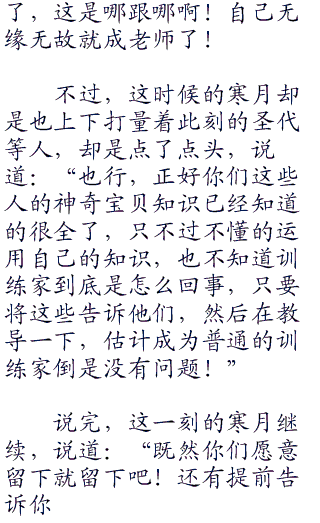 了，这是哪跟哪啊！自己无
缘无故就成老师了！
不过，这时候的寒月却
是也上下打量着此刻的圣代
等人，却是点了点头，说
道：“也行，正好你们这些
人的神奇宝贝知识已经知道
的很全了，只不过不懂的运
用自己的知识，也不知道训
练家到底是怎么回事，只要
将这些告诉他们，然后在教
导一下，估计成为普通的训
练家倒是没有问题！”
说完，这一刻的寒月继
续，说道：“既然你们愿意
留下就留下吧！还有提前告
诉你